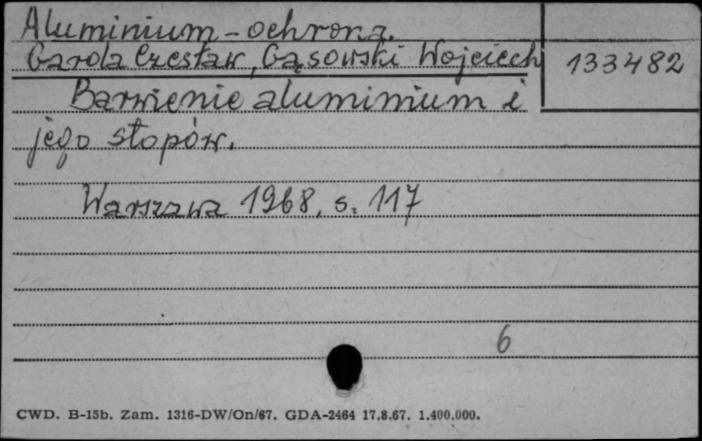 Aluminium - ochrona.
Garola Czesław, Gąsowski Wojciech
133482
Barwienie aluminium i
jego stopów.
Warszawa 1968, s. 117
6
CWD. B-15b. Zam. 1316-DW/On/67. GDA-2464 17.8.67. 1.400.000.